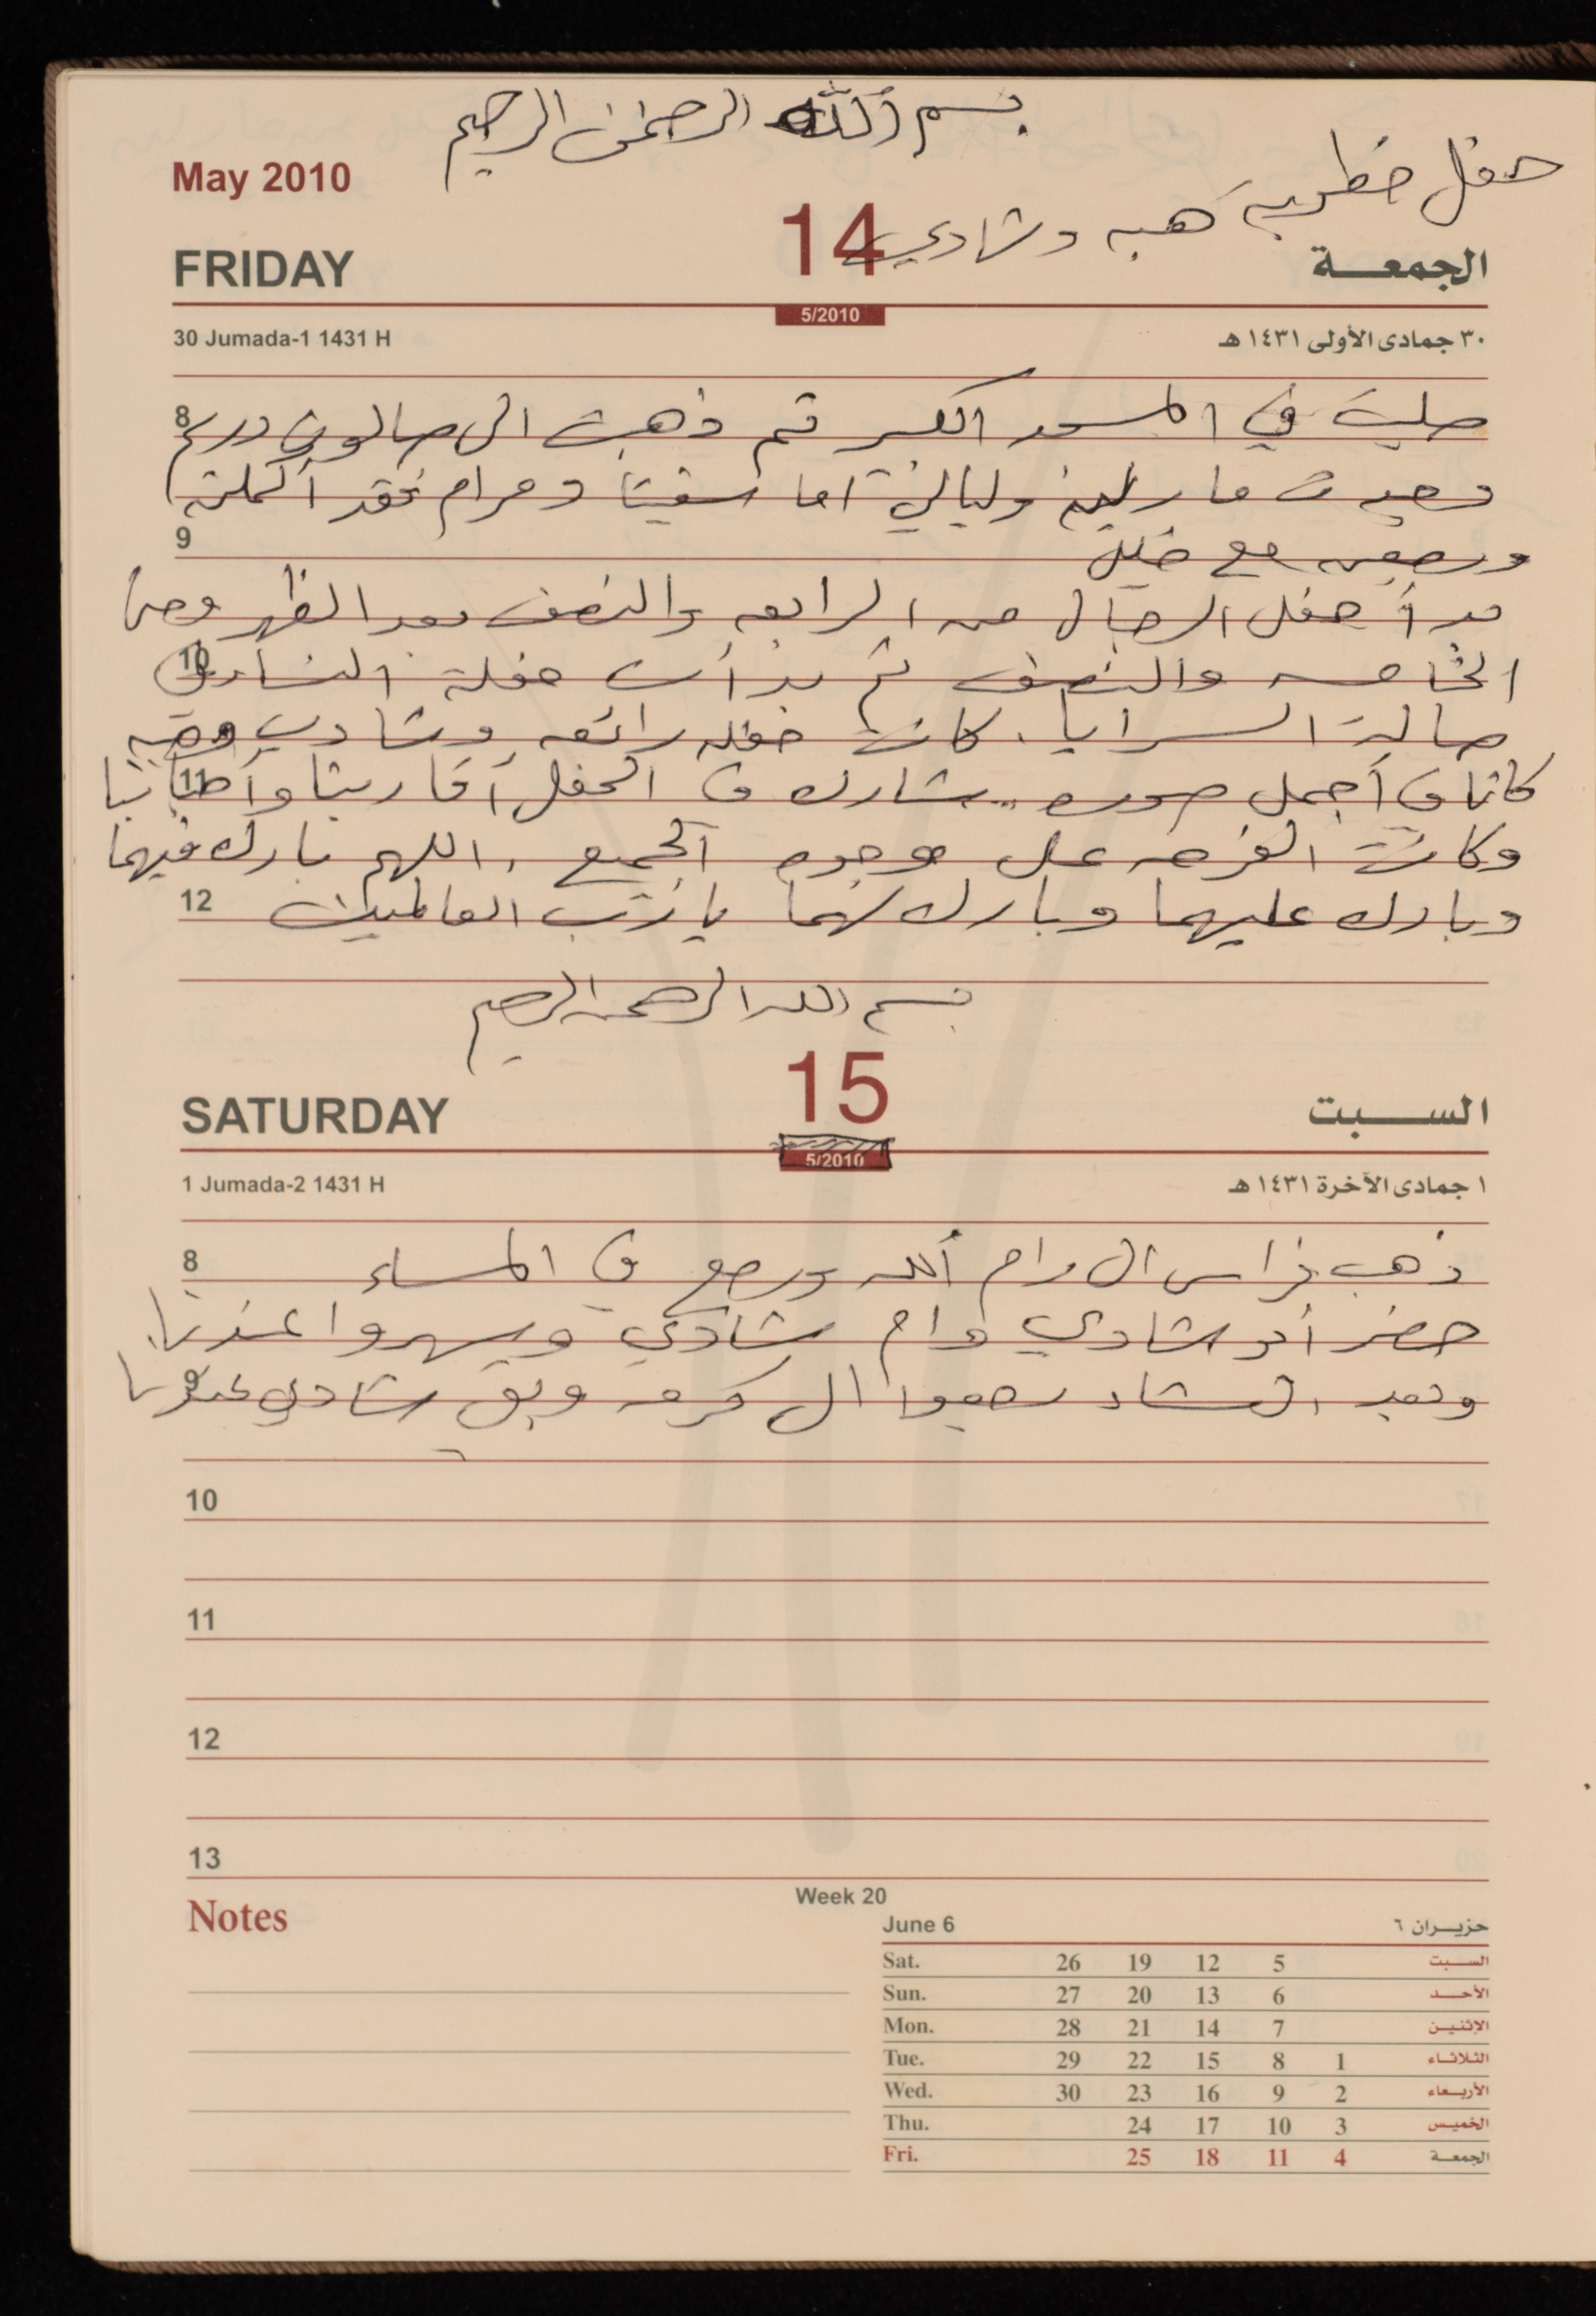 بسم الله الرحمن الرحيم
حفل خطوبة هبه وشادي
May 2010
FRIDAY 14 الجمعة
5/2010
30 Jumada-1 1431 H ٣٠ جمادى الأولى ١٤٣١ هـ
8 صليت في المسجد الكبير ثم ذهبت الى صالون دريم
وجدت مارلين وليالي اما سفيتا ومرام فقد أكملن
9
ورجعن مع خليل
بدأ حفل الرجال من الرابعه والنصف بعد الظهر وحتى
10 الخامسه والنصف ثم بدأت حفلة النساء في
صالة السرايا. كانت حفله رائعه وشادي وهبه
11 كانا في أجمل صوره.. شارك في الحفل أقاربنا وأحبابنا
وكانت الفرحه على وجوه الجميع. اللهم بارك فيهما
12 وبارك عليهما وبارك لهما يا رب العالمين
بسم الله الرحمن الرحيم
SATURDAY 15 السبت
5/2010
1 Jumada-2 1431 H ١ جمادى الآخرة ١٤٣١ هـ
8 ذهب فراس الى رام الله ورجع في المساء
حضر أبو شادي وام شادي وسهروا عندنا
9 وبعد العشاء رجعوا الى وبقي شادي عندنا
10
11
12
13
Notes
Week 20
June 6 حزيران ٦
Sat. 26 19 12 5 السبت
Sun. 27 20 13 6 الأحد
Mon. 28 21 14 7 الإثنين
Tue. 29 22 15 8 1 الثلاثاء
Wed. 30 23 16 9 2 الأربعاء
Thu. 24 17 10 3 الخميس
Fri. 25 18 11 4 الجمعة